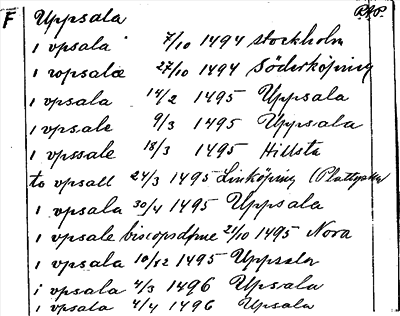 F Uppsala P.A.P.
i vpsala 7/10 1494 Stockholm
i wpsalæ 27/10 1494 Söderköping
i vpsala 14/2 1495 Uppsala
i vpsale 9/3 1495 Uppsala
i vpssale 18/3 1495 Hillsta
to vpsall 24/3 1495 Linköping
i vpsala 30/4 1495 Uppsala
i vpsale biscopsdøme 21/10 1495 Nora
i vpsala 10/12 1495 Uppsala
i vpsala 4/3 1496 Uppsala
i vpsala 4/4 1496 Uppsala